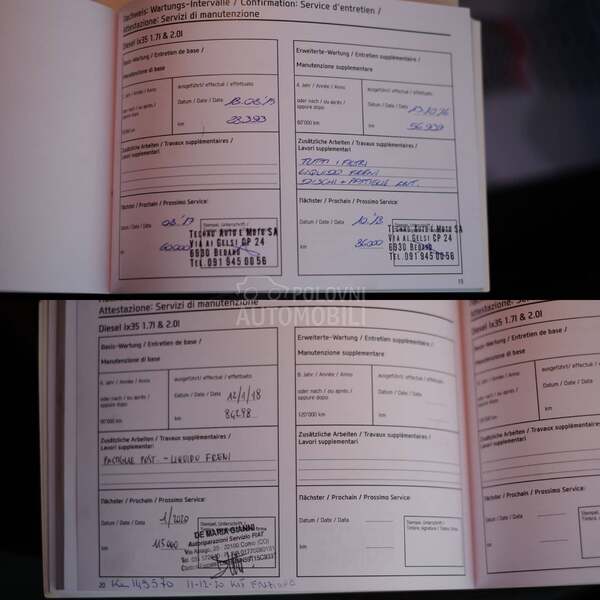 Nachweis: Wartungs-Intervalle / Confirmation: Service d'entretien /
Attestazione: Servizi di manutenzione
Diesel ix35 1.7l & 2.0l
Basis-Wartung / Entretien de base /
Manutenzione di base
Jahr / Année / Anno
ausgeführt / effectué / effettuato
oder nach / ou après /
oppure dopo
Datum / Date / Data
km
28.393
Zusätzliche Arbeiten / Travaux supplémentaires /
Lavori supplementari
Nächster / Prochain / Prossimo Service:
Datum / Date / Data
km
60000
TECHNO AUTO E MOTO SA
VIA AI GELSI CP 24
6930 BEDANO
TEL. 091 945 00 56
Erweiterte-Wartung / Entretien supplémentaire /
Manutenzione supplementare
4. Jahr / Année / Anno
ausgeführt / effectué / effettuato
oder nach / ou après /
oppure dopo
Datum / Date / Data
60'000 km
km
56.909
Zusätzliche Arbeiten / Travaux supplémentaires /
Lavori supplementari
TUTTI I FILTRI
LIQUIDO FRENI
DISCHI + PASTIGLIE ANT.
Nächster / Prochain / Prossimo Service:
Datum / Date / Data
km
TECHNO AUTO E MOTO SA
VIA AI GELSI CP 24
6930 BEDANO
TEL. 091 945 00 56
15
POLOVNI
AUTOMOBILI
Attestazione: Servizi di manutenzione
Diesel ix35 1.7l & 2.0l
Basis-Wartung / Entretien de base /
Manutenzione di base
Jahr / Année / Anno
ausgeführt / effectué / effettuato
oder nach / ou après /
oppure dopo
Datum / Date / Data
12/1/18
km
86298
Zusätzliche Arbeiten / Travaux supplémentaires /
Lavori supplementari
PASTIGLIE POST. - LIQUIDO FRENI
Nächster / Prochain / Prossimo Service:
Datum / Date / Data
1/2020
km
115000
DE MARIA GIANNI
Autoriparazioni Servizio FIAT
Erweiterte-Wartung / Entretien supplémentaire /
Manutenzione supplementare
8. Jahr / Année / Anno
ausgeführt / effectué / effettuato
oder nach / ou après /
oppure dopo
Datum / Date / Data
120'000 km
km
Zusätzliche Arbeiten / Travaux supplémentaires /
Lavori supplementari
Nächster / Prochain / Prossimo Service:
Datum / Date / Data
km
Stempel, Unterschrift /
Timbre, signature / Timbro, firma
Diesel ix35 1.7l & 2.0l
Basis-Wartung / Entretien de
Manutenzione di base
Jahr / Année / Anno
oder nach / ou après /
oppure dopo
km
Zusätzliche Arbeiten / Tra
Lavori supplementari
Nächster / Prochain / P
Datum / Date / Data
km
20 Km 149570 11-12-20